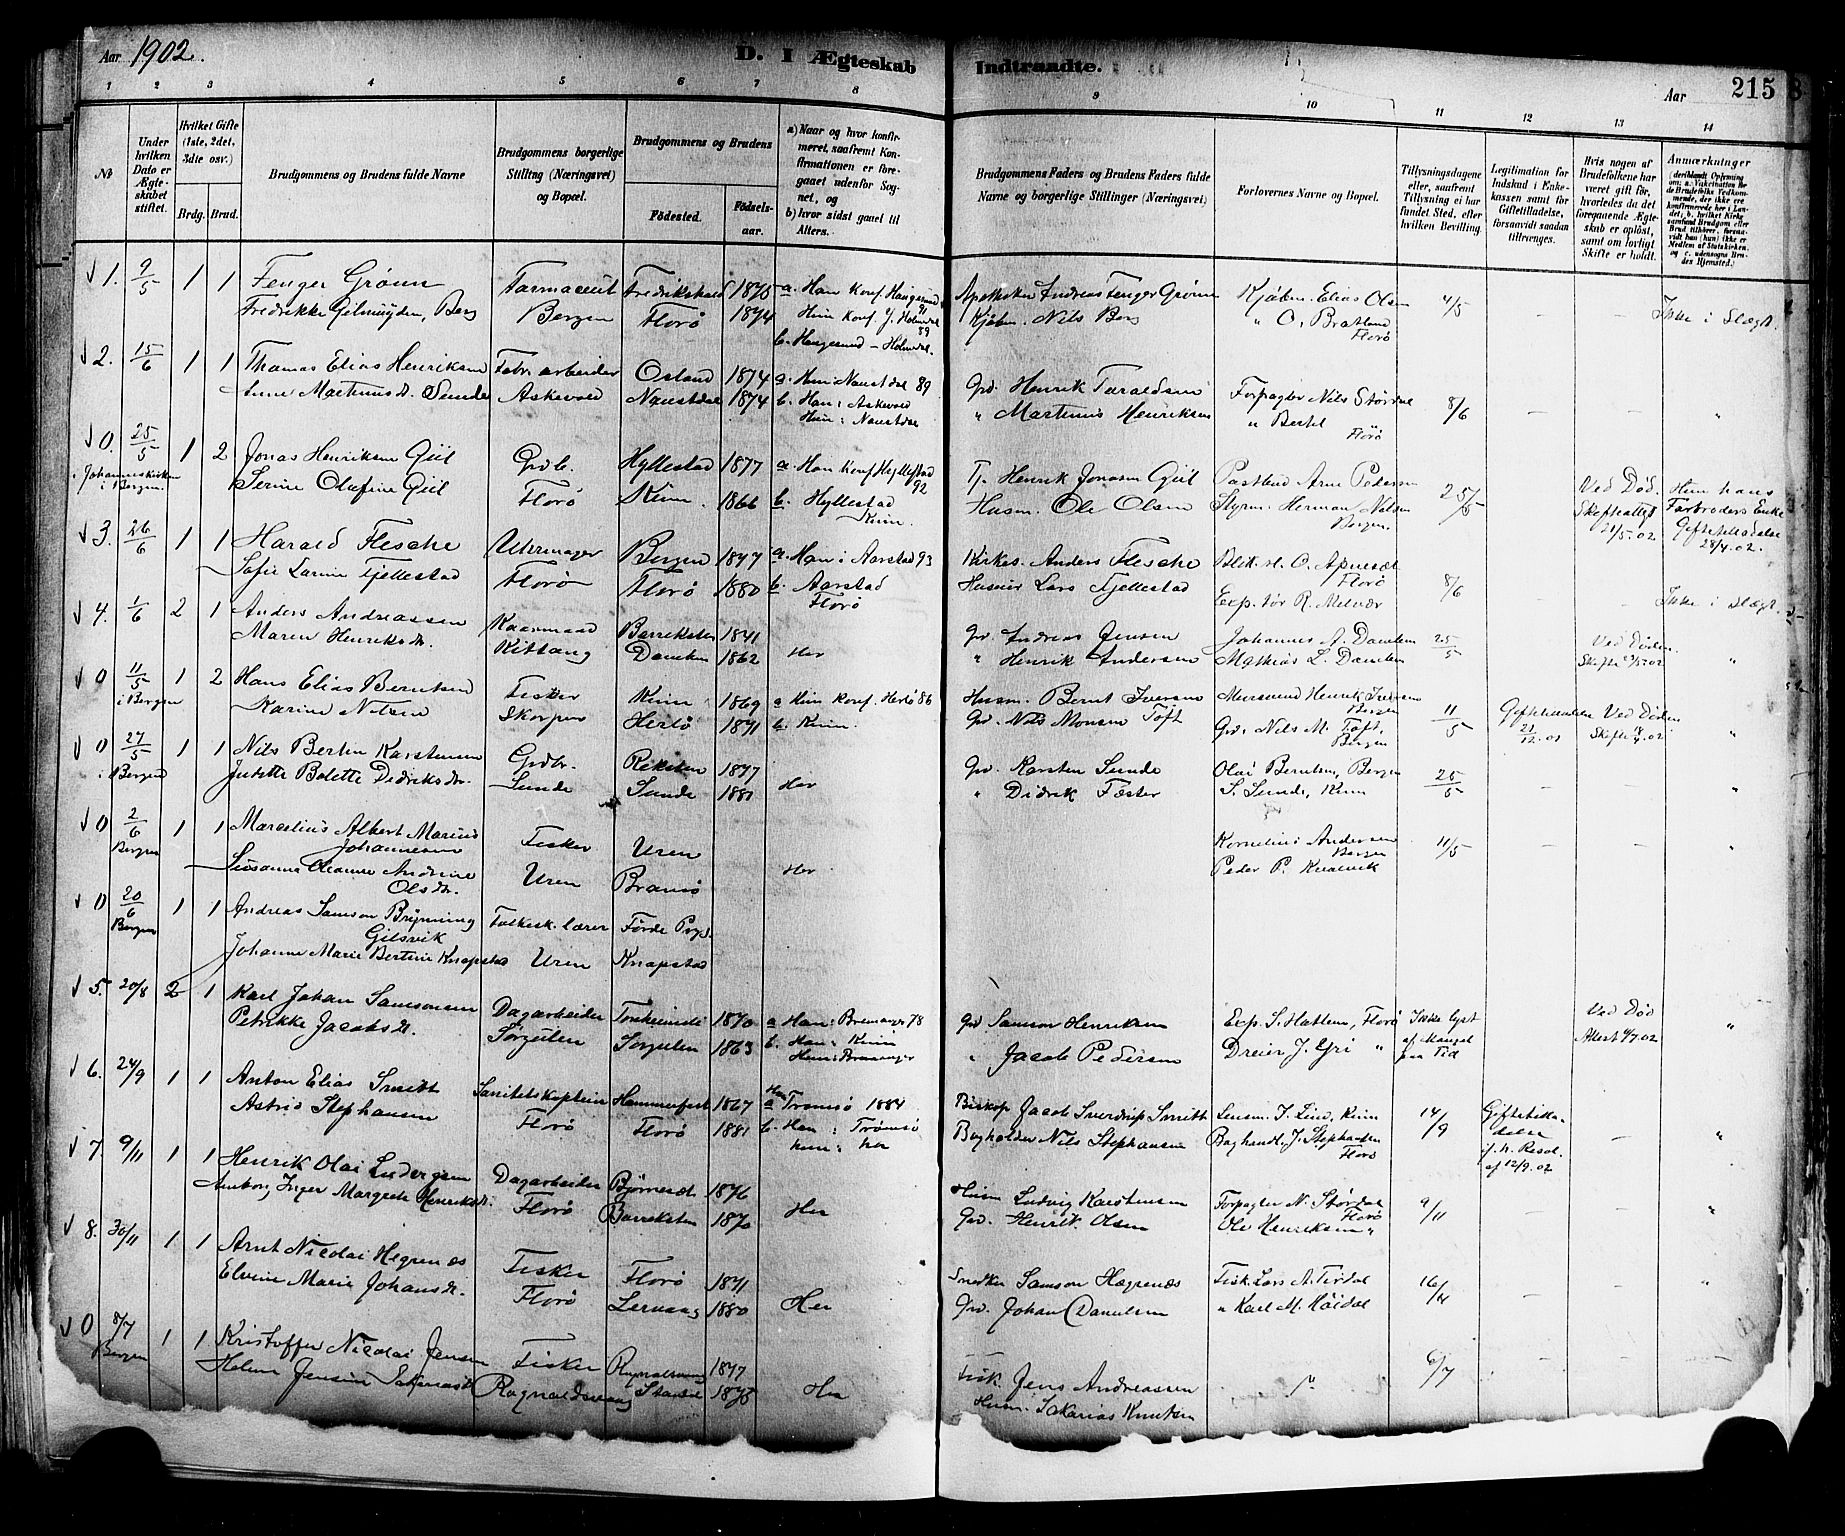 Aar 1902. D. I Ægteskab Indtraadte. Aar 215
1 2 3 4 5 6 7 8 9 10 11 12 13 14
No
Under hvilken Dato er Ægteskabet stiftet.
Hvilket Gifte (1ste, 2det, 3die osv.)
Brdg. Brud.
Brudgommens og Brudens fulde Navne
Brudgommens borgerlige Stilling (Næringsvei) og Bopæl.
Brudgommens og Brudens
Födested. Födsels-aar.
a) Naar og hvor konfirmeret, saafremt Konfirmationen er foregaaet udenfor Sognet, og
b) hvor sidst gaaet til Alters.
Brudgommens Faders og Brudens Faders fulde Navne og borgerlige Stillinger (Næringsvei)
Forlovernes Navne og Bopæl.
Tillysningsdagene eller, saafremt Tillysning ei har fundet Sted, efter hvilken Bevilling.
Legitimation for Indskud i Enkekassen samt for Giftetilladelse, forsaavidt saadan tiltrænges.
Hvis nogen af Brudefolkene har været gift før, hvorledes da det foregaaende Ægteskab er oplöst, samt om lovligt Skifte er holdt.
Anmærkninger
1. 9/5 1 1 Fenger Grönn Farmaceut Fredrikshald 1875 a. Han konf. Haugesund 91 Apotheker Andreas Fenger Grönn Kjöbm. Elias Olsen 4/5 — — Ikke i Slægt.
Fredrikke Gilmuyden Berg Bergen Florö 1874 Hun konf. Y. Holmedal 89 Kjöbm. Nils Berg " O. Bratland Florö
b. Haugesund — Holmedal.
2. 15/6 1 1 Thomas Elias Henriksen Fabr. arbeider Osland 1874 a. Hun: Naustdal 89 Grd. Henrik Taraldsen Forpagter Nils Stördal 8/6 — — "
Anne Martinusdr. Sunde Askevold Naustdal 1874 b. Han: Askevold " Martinus Henriksen " Bertel " Florö
Hun: Naustdal
0. 25/5 1 2 Jonas Henriksen Giil Grdb. Hyllestad 1877 a. Han konf. Hyllestad 92 Tj. Henrik Jonasen Giil Postbud Arne Pedersen 25/5 — Ved Död. Hun hans
i Johanneskirken i Bergen Serine Olafine Giil Florö Kinn 1866 b. Hyllestad Kinn. Husm. Ole Olsen Styrm. Herman Nilsen Bergen Skifteattest 21/5.02 Farbroders Enke
Giftetilladelse 28/4.02.
3. 26/6 1 1 Harald Flesche Uhrmager Bergen 1877 a. Han i Aarstad 93 Kirkes. Anders Flesche Blikk. O. Apneseth Florö 8/6 — — Ikke i Slægt.
Sofie Larine Fjellestad Florö Florö 1880 b. Aarstad Florö Huseier Lars Fjellestad Exp.tör R. Melvær
4. 1/6 2 1 Anders Andreassen Kaarmaad Barreksten 1841 Her Grd. Andreas Jensen Johannes A. Damsten 25/5 — Ved Döden. "
Maren Henriksdr. Kittang Domsten 1862 " Henrik Andersen Mathias L. Domsten Skifte
0 11/5 1 2 Hans Elias Berntsen Fisker Kinn 1869 a Hun konf. Herlö 86 Husm. Bernt Iversen Murmand Henrik Iversen Bergen 11/5 Giftetilladelse Ved Döden "
i Bergen Karine Nilsine Skorpen Herlö 1871 b. Kinn. Grd. Nils Monsen Töft Grd. Nils M. Töft, Bergen 21/12.01 Skifte
0 27/5 1 1 Nils Berten Karstensen Grdbr. Reksten 1877 Her Grd. Karsten Sunde Olai Berntsen, Bergen 25/5 — — "
i Bergen Judette Bolette Didriksdr. Sunde Sunde 1881 " Didrik Fæster S. Sunde, Kinn
0 2/6 1 1 Marcelius Albert Marius Johannesen Fisker Uren Her Kornelius Andersen Bergen 11/5 — — "
Bergen Susanna Oleanne Andrine Olsdr. Uren Bramsö Peder P. Knarvik
0 20/6 1 1 Andreas Samson Brynning Gilsvik Folkesk. lærer Förde Prgd.
Bergen Johanne Marie Bertine Knapstad Uren Knapstad
5. 20/8 2 1 Karl Johan Samsonsen Dagarbeider Tonheimsli 1870 a Han: Bremanger 78 Grd Samson Henriksen Exp. S. Hatlem, Florö Ikke lyst Ved Död "
Petrikke Jacobsdr. Sörgulen Sörgulen 1863 b. Han: Kinn " Jacob Pedersen Dreier J. Gri " af Mangel Attest 9/7.02
Hun: Bremanger paa Tid
6. 24/9 1 1 Anton Elias Smitt Sanitetskaptein Hammerfest 1867 a Han Tromsö 1884 Biskop Jacob Sverdrup Smitt Lensm. J. Lind, Kinn 14/9 Giftetilladelse — "
Astrid Stephansen Florö Florö 1881 b. Han: Tromsö Boghelder Nils Stephansen Boghandl. J. Stephansen Florö if. n. Resol.
hun: her af 12/9.02
7. 9/11 1 1 Henrik Olai Ludvigsen Dagarbeider Björnset 1876 Her Husm Ludvig Karstensen Forpagter N. Stördal Florö 9/11 — — "
Ambor Inger Margrete Henriksdr. Florö Barreksten 1870 Grd. Henrik Olsen Ole Henriksen "
8. 30/11 1 1 Arnt Nicolai Hegrenæs Fisker Florö 1871 Her Snedker Samson Hægrenæs Fisk. Lars A. Tirdal 16/11 — — "
Elvine Marie Johansdr. Florö Lervaag 1880 Grd. Johan Danielsen " Karl M. Höidal
0 8/7 1 1 Kristoffer Nicolai Jensen Fisker Rognaldsvaag 1877 Her Fisk. Jens Andreassen 6/7 — —
Bergen Heline Jensine Sakariasdr. Rognaldsvaag Stavøl 1878 Husm. Sakarias Knutsen